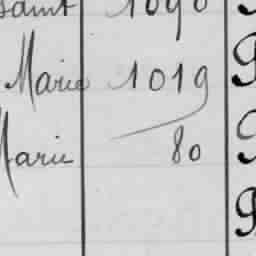 saint 1090
Marie 1019
Marie 80